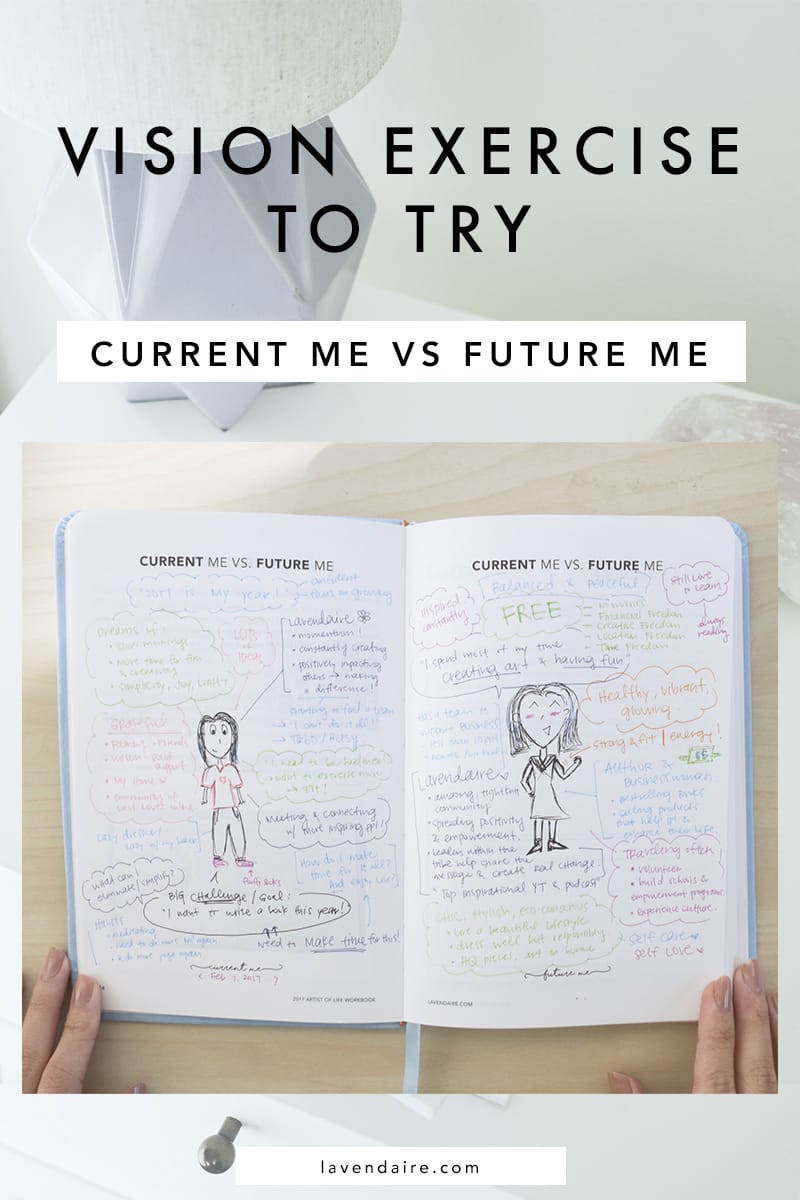 VISION EXERCISE
TO TRY
CURRENT ME VS FUTURE ME
CURRENT ME VS. FUTURE ME
"2017 is MY year!"
confident
focus on growing
Dreams of:
• slow mornings
• more time for fun
& creativity
• simplicity, Joy,
LOTS
of
ideas
Lavendaire
• momentum!
• constantly creating
• positively impacting
others → making
a difference!
Grateful
• Family + Friends
support
• My Home ♡
• community of
wanting to find a team
→ "I can't do it all!!"
→ TIRED / BUSY
I need to be healthier!
want to exercise more
→ FIT!
Meeting & connecting
w/ more inspiring ppl!
Lazy dresser/
Lazy w/ my hair
fluffy socks
How do I make
time for it all?
And enjoy life?
what can I
eliminate/simplify?
BIG challenge/Goal:
"I want to write a book this year!"
Need to MAKE time for this!
Habits
• meditating
• need to do more
• do more yoga again
current me
< Feb 1, 2017 >
2017 ARTIST OF LIFE WORKBOOK
CURRENT ME VS. FUTURE ME
Balanced & Peaceful
inspired
constantly
FREE
– No worries
– Financial Freedom
– Creative Freedom
– Location Freedom
– Time Freedom
Still Love
to Learn
always
reading
"I spend most of my time
creating art & having fun"
Has a team to
support business
less than 10 ppl
Healthy, vibrant,
glowing
strong & fit / energy!
$$
Lavendaire ♡
• amazing, tightknit
community
• spreading positivity
& empowerment
• leaders within the
tribe help share the
message & create real change.
"Top inspirational YT & podcast"
AUTHOR &
Businesswoman
• Bestselling Books
• selling products
that help ppl &
enhance their life.
Traveling often
• volunteer
• build schools &
empowerment programs.
• experience culture
CHIC, stylish, eco-conscious
• Live a beautiful lifestyle
• dress well but responsibly
• HQ pieces, art in home
self care ♡
self LOVE ♡
future me
LAVENDAIRE.COM
lavendaire.com